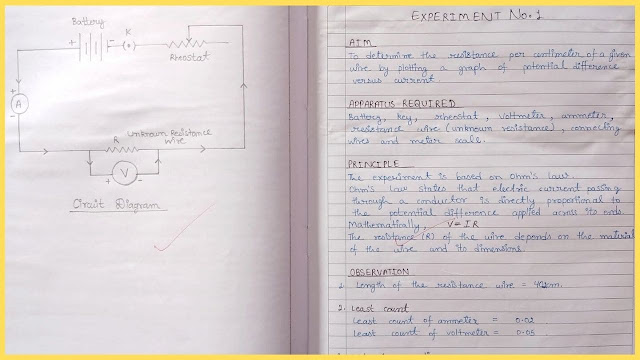 Battery
+
-
K
Rheostat
+
A
-
Unknown Resistance
wire
R
+
V
-
Circuit Diagram
EXPERIMENT No. 1
AIM
To determine the resistance per centimeter of a given
wire by plotting a graph of potential difference
versus current.
APPARATUS REQUIRED
Battery, key, rheostat, voltmeter, ammeter,
resistance wire (unknown resistance), connecting
wires and meter scale.
PRINCIPLE
The experiment is based on Ohm's law.
Ohm's Law states that electric current passing
through a conductor is directly proportional to
the potential difference applied across its ends.
Mathematically, V = IR
The resistance (R) of the wire depends on the material
of the wire and its dimensions.
OBSERVATION
1. Length of the resistance wire =
2. Least count
Least count of ammeter = 0.02
Least count of voltmeter = 0.05